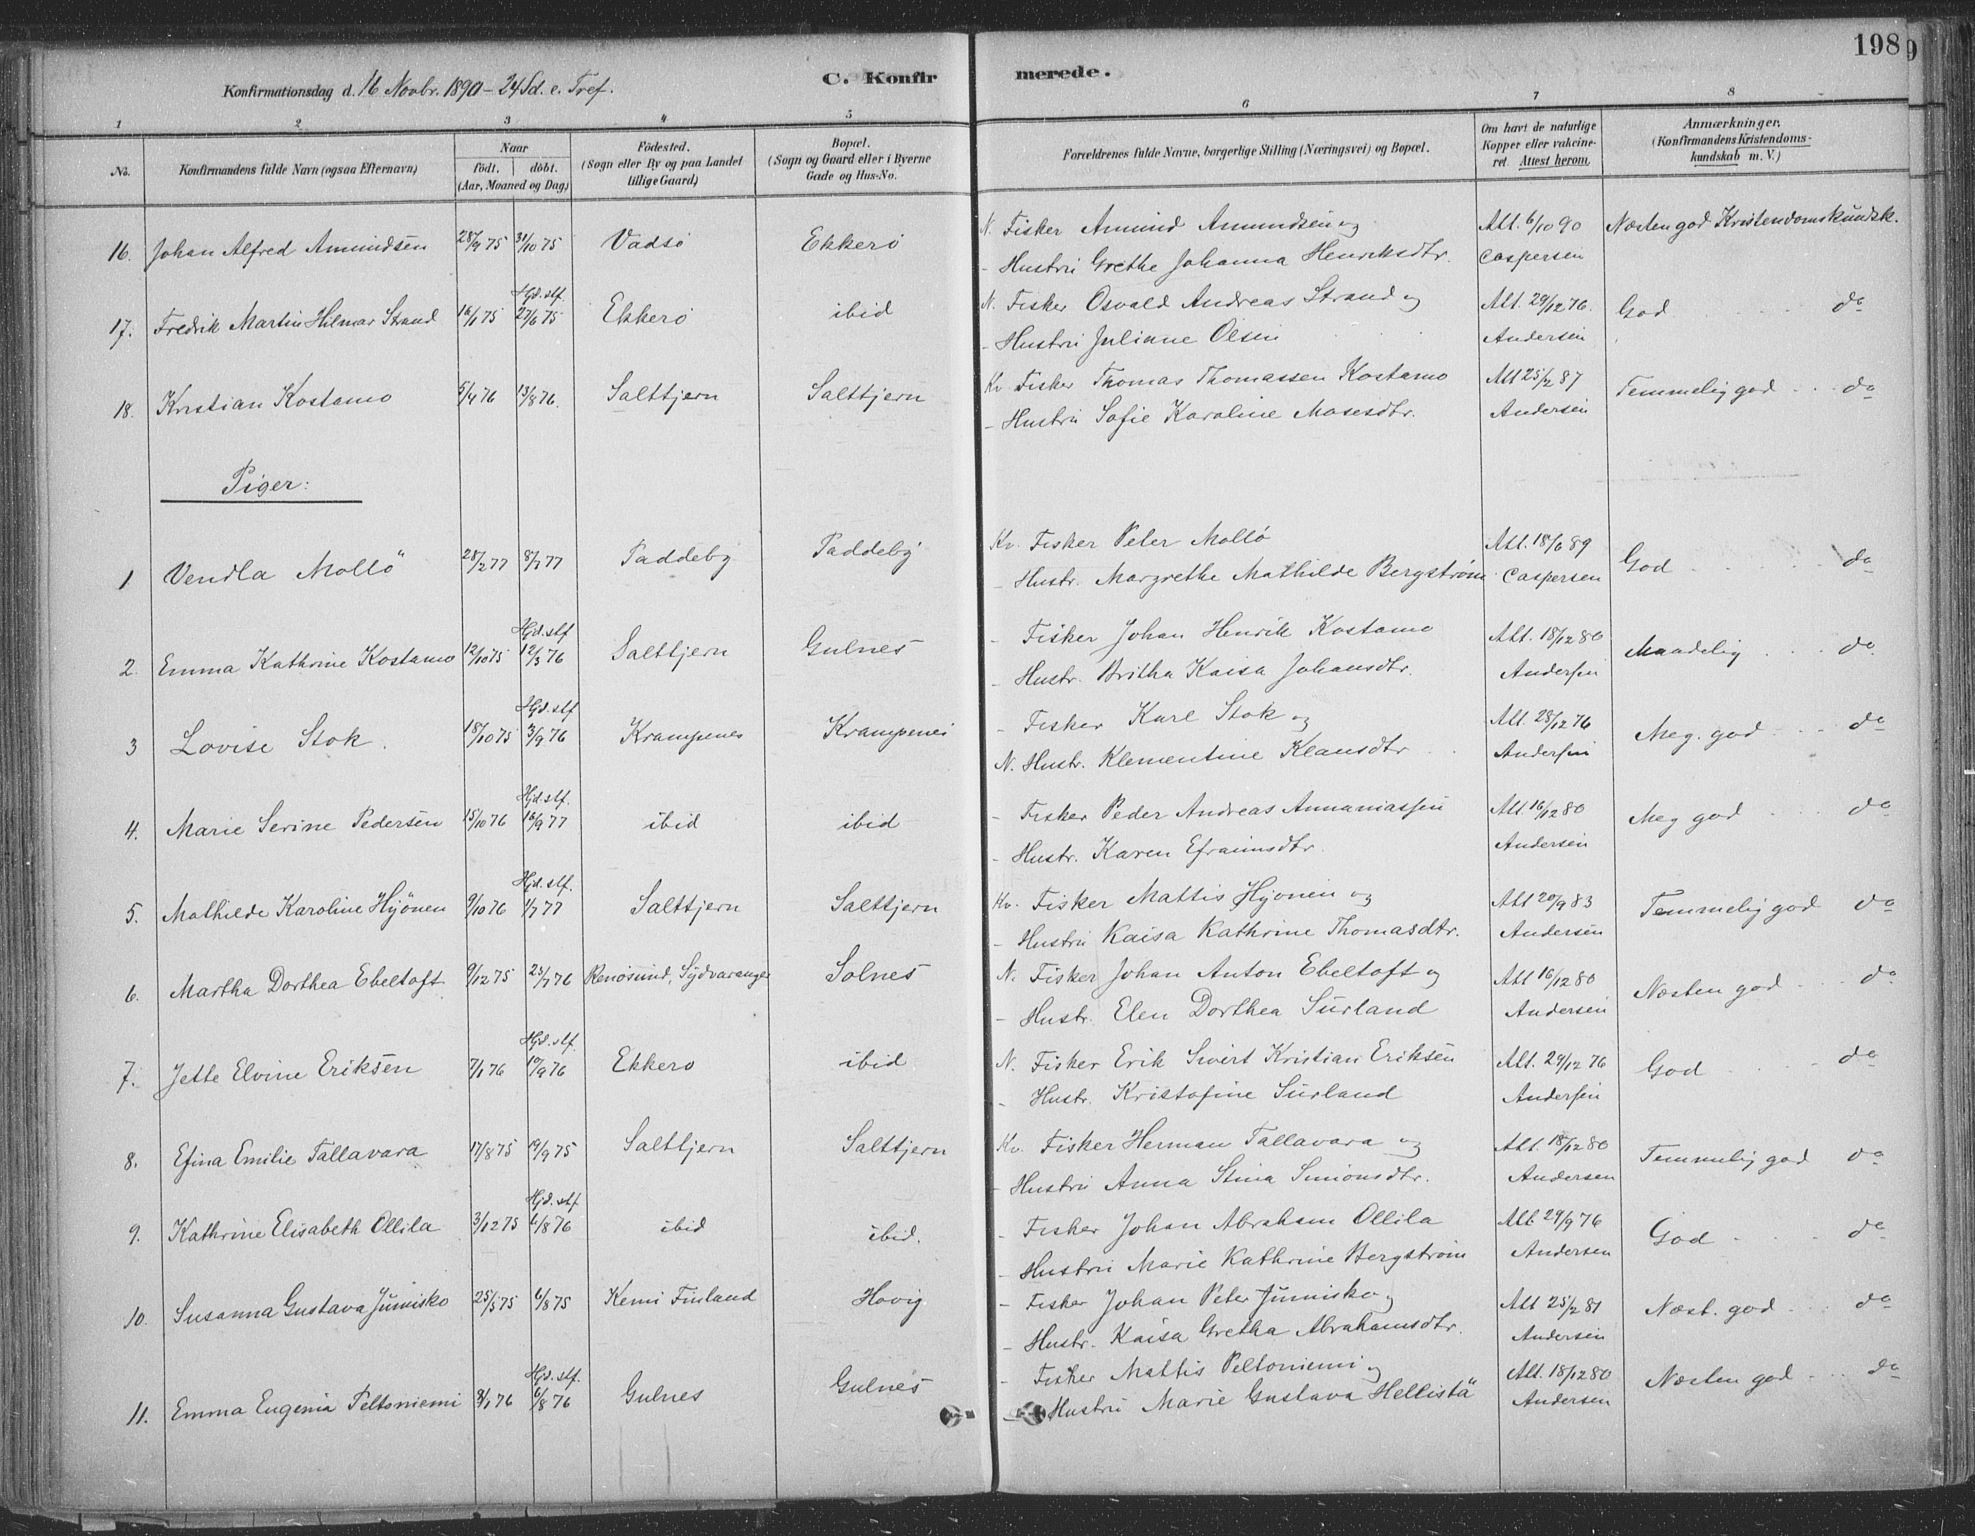 198
9
Konfirmationsdag d. 16 Novbr. 1890 - 24 Sd. e. Tref.
C. Konfirmerede.
1 2 3 4 5 6 7 8
No.
Konfirmandens fulde Navn (ogsaa Efternavn)
Naar
födt. döbt.
(Aar, Maaned og Dag)
Födested.
(Sogn eller By og paa Landet
tillige Gaard)
Bopæl.
(Sogn og Gaard eller i Byerne
Gade og Hus-No.
Forældrenes fulde Navne, borgerlige Stilling (Næringsvei) og Bopæl.
Om havt de naturlige
Kopper eller vakcine-
ret. Attest herom.
Anmærkninger.
(Konfirmandens Kristendoms-
kundskab m. V.)
16. Johan Alfred Amundsen 28/9 75 31/10 75 Vadsö Ekkerö N. Fisker Amund Amundsen og Att. 6/10 90 Næsten god Kristendomskundsk.
- Hustru Grethe Johanna Henriksdtr. Caspersen
Hjd. slf.
17. Fredrik Martin Hilmar Strand 16/1 75 27/6 75 Ekkerö ibid N. Fisker Osvald Andreas Strand og Att. 29/12 76. God do
- Hustru Juliane Olsen Andersen
18. Kristian Kostamo 5/4 76 13/8 76. Salttjern Salttjern Kv. Fisker Thomas Thomassen Kostamo Att 25/2 87 Temmelig god do
- Hustru Sofie Karoline Mosesdtr. Andersen
Piger:
1 Vendla Mollö 28/2 77 8/7 77 Paddeby Paddeby Kv. Fisker Peter Mollö Att. 18/6 89 God do
- Hustr. Margrethe Mathilde Bergström Caspersen
Hjd. slf
2. Emma Kathrine Kostamo 12/10 75 12/3 76 Salttjern Gulnes - Fisker Johan Henrik Kostamo Att. 18/12 80 Maadelig do.
- Hustr. Britha Kaisa Johansdtr. Andersen
Hjd. slf
3 Lovise Stok. 18/10 75 3/9 76 Krampenes Krampenes - Fisker Karl Stok og Att. 28/12 76 Meg. god do
N. Hustr. Klementine Klausdtr Andersen
Hjd. slf.
4. Marie Serine Pedersen 15/10 76 16/9 77 ibid ibid - Fisker Peder Andreas Annaniassen Att. 16/12 80 Meg god do
- Hustr. Karen Efraimsdtr. Andersen
Hjd. slf.
5. Mathilde Karoline Hyönen 9/10 76 1/7 77 Salttjern Salttjern Kv. Fisker Mattis Hyönen og Att 20/9 83 Temmelig god do
- Hustru Kaisa Kathrine Thomasdtr. Andersen
6. Martha Dorthea Ebeltoft 9/12 75 23/7 76 Renösund, Sydvaranger Solnes N. Fisker Johan Anton Ebeltoft og Att 16/12 80 Næsten god do
- Hustr. Elen Dorthea Surland Andersen
Hjd. slf.
7. Jette Elvine Eriksen 7/1 76 10/9 76 Ekkerö ibid N. Fisker Erik Sivert Kristian Eriksen Att. 29/12 76 God do
- Hustr. Kristofine Surland Andersen
8. Efina Emilie Tallavara 17/8 75 19/9 75 Salttjern Salttjern Kv. Fisker Herman Tallavara og Att. 18/12 80 Temmelig god do
- Hustru Anna Stina Simonsdtr. Andersen
Hjd. slf
9. Kathrine Elisabeth Ollila 3/12 75 6/8 76 ibid ibid. - Fisker Johan Abraham Ollila Att 29/9 76 God do
- Hustru Marie Kathrine Bergström Andersen
10. Susanna Gustava Jumisko 25/5 75 6/8 75 Kemi Finland Havig - Fisker Johan Peter Jumisko og Att 25/2 81 Næst. god do
- Hustr. Kaisa Gretha Abrahamsdtr. Andersen
Hjd. slf.
11. Emma Eugenia Peltoniemi 8/1 76 6/8 76 Gulnes Gulnes - Fisker Mattis Peltoniemi og Att. 18/12 80 Næsten god do
- Hustru Marie Gustava Hellistä Andersen